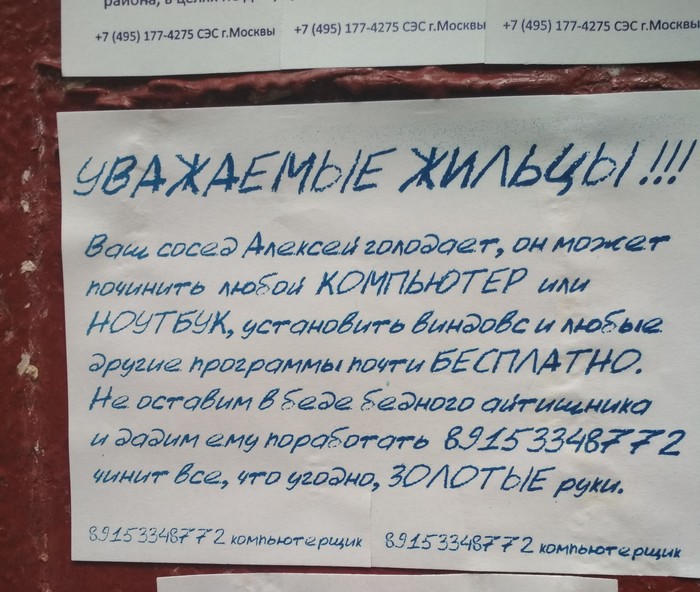 района, в целях
+7 (495) 177-4275 СЭС г.Москвы +7 (495) 177-4275 СЭС г.Москвы +7 (495) 177-4275 СЭС г.Москвы
УВАЖАЕМЫЕ ЖИЛЬЦЫ!!!
Ваш сосед Алексей голодает, он может
починить любой КОМПЬЮТЕР или
НОУТБУК, установить виндовс и любые
другие программы почти БЕСПЛАТНО.
Не оставим в беде бедного айтишника
и дадим ему поработать 89153348772
чинит все, что угодно, ЗОЛОТЫЕ руки.
89153348772 компьютерщик 89153348772 компьютерщик